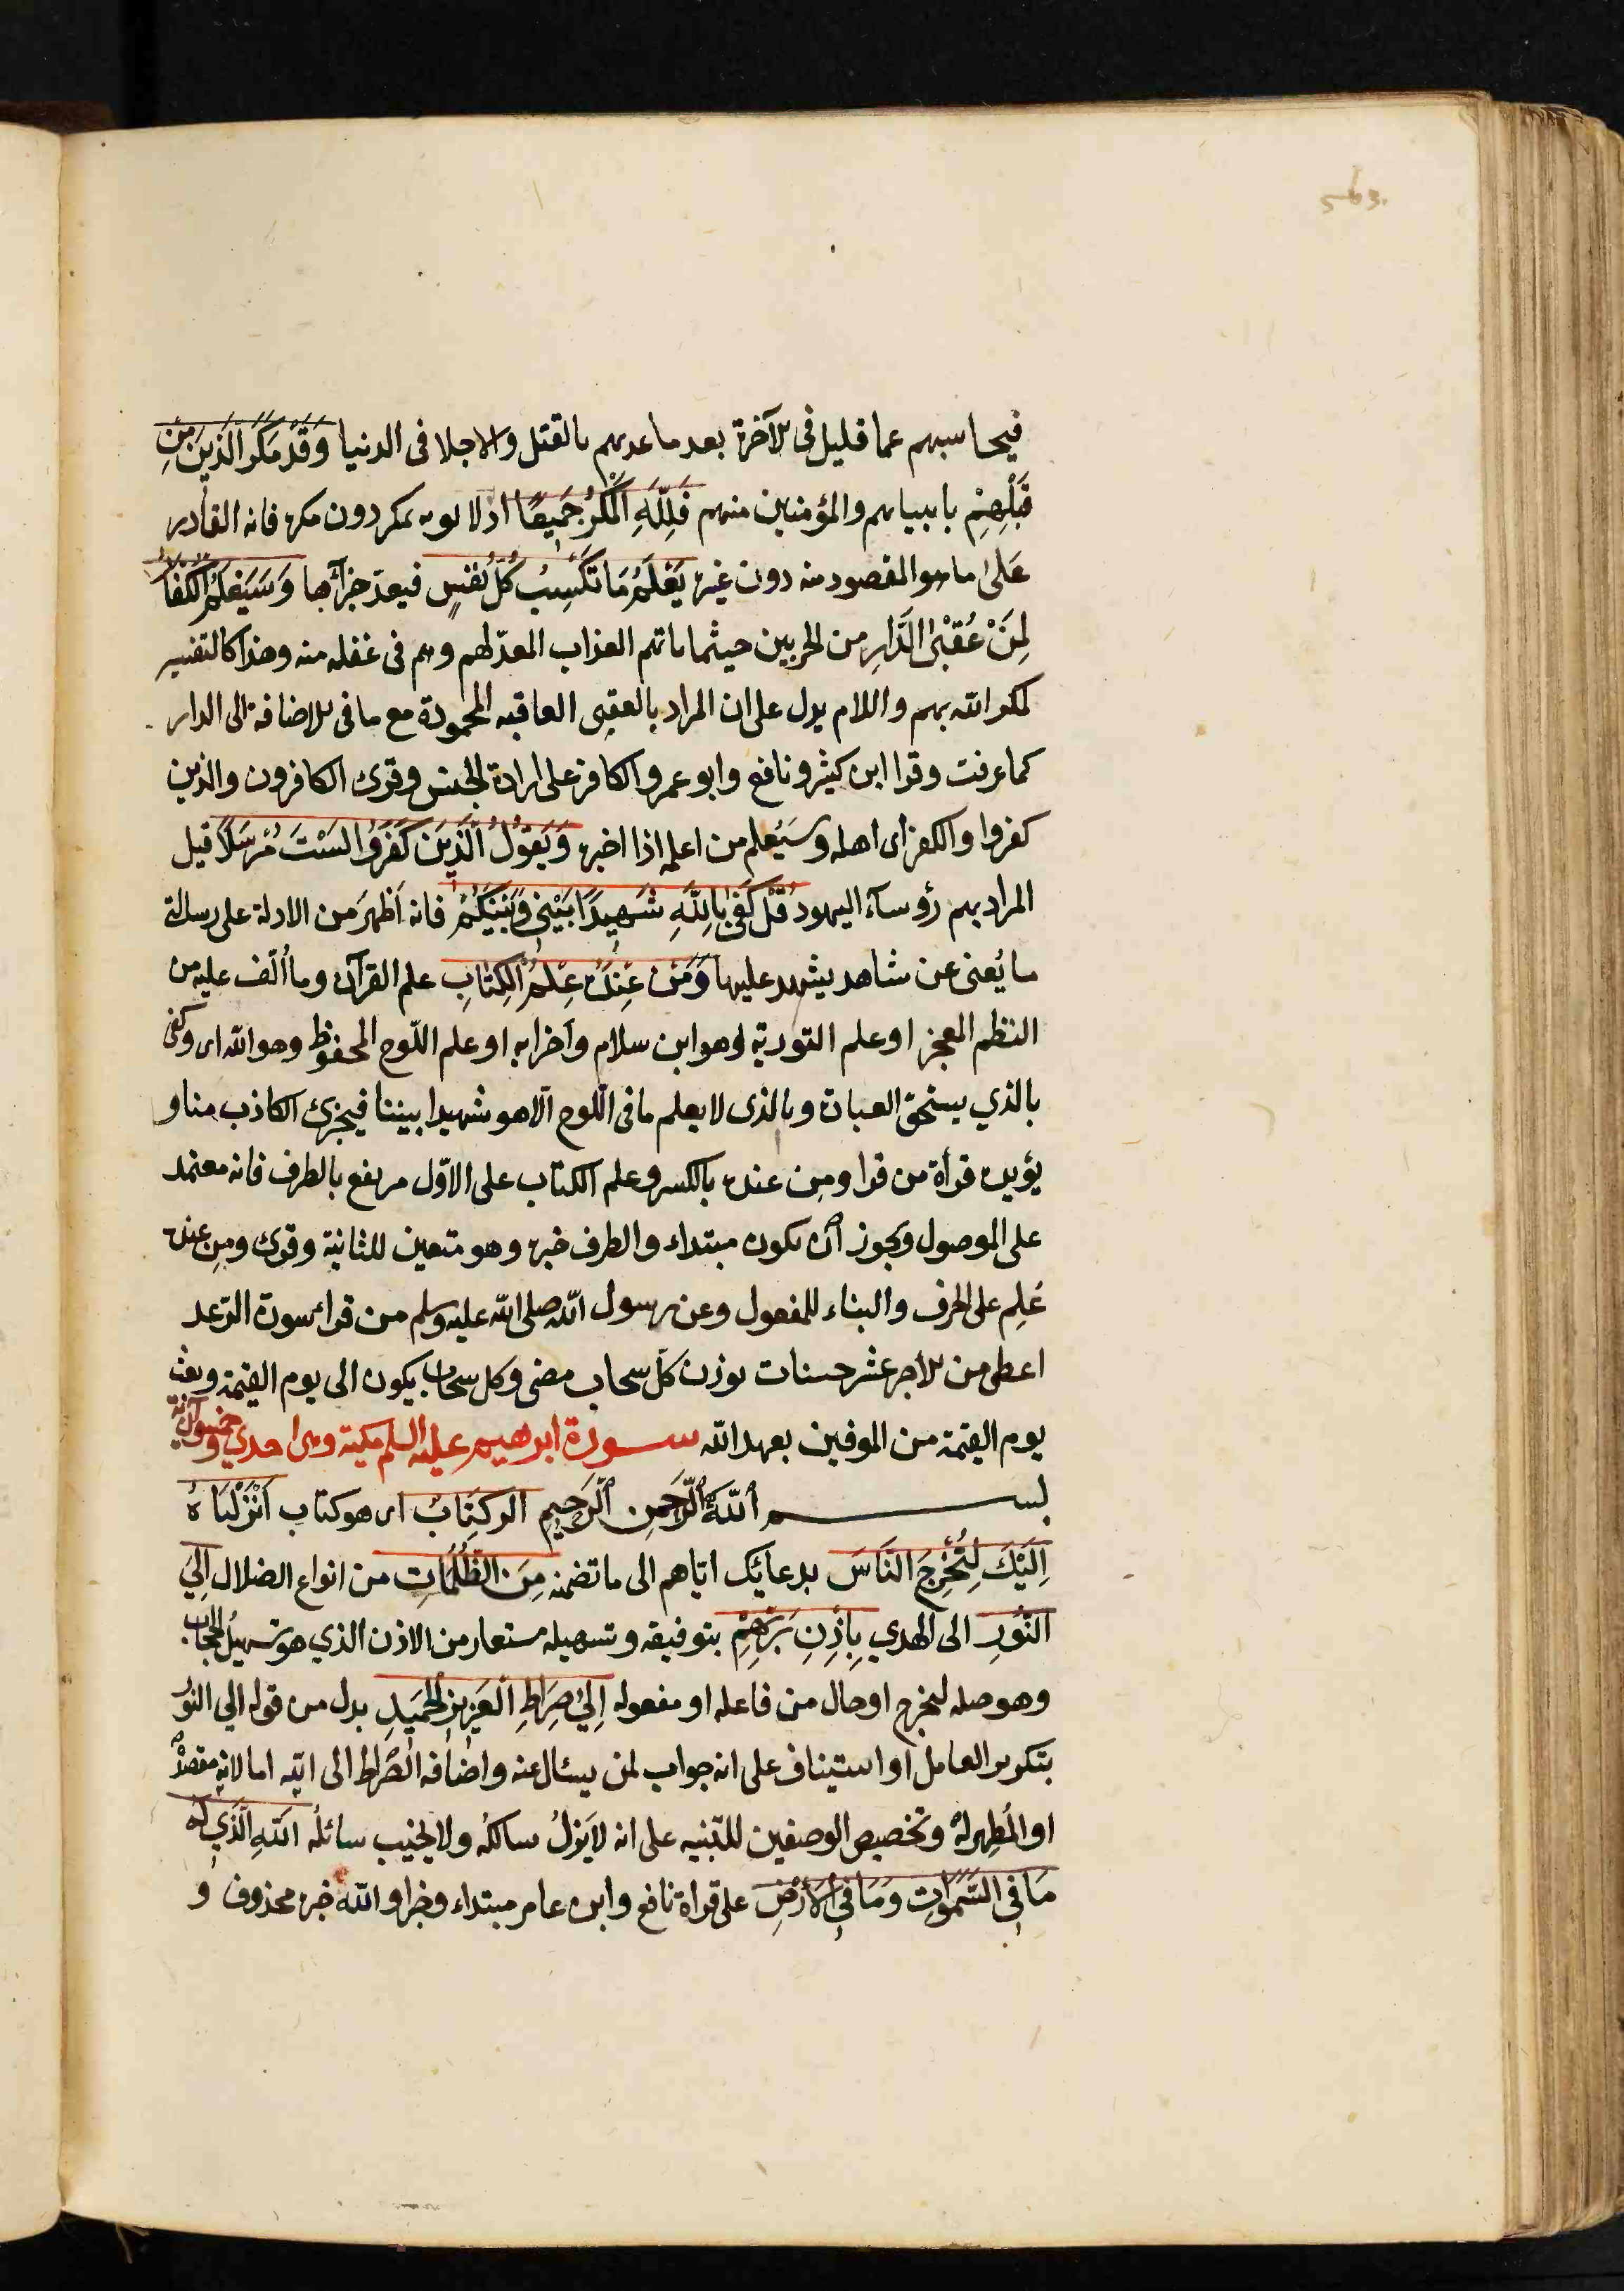 563.
فيحاسبهم عما قليل فى الآخرة بعد ما عدبهم بالقتل والاجلا فى الدنيا وَقَدْ مَكَرَ الَّذِينَ مِن
قَبْلِهِمْ بانبيائهم والمؤمنين منهم فَلِلَّهِ الْمَكْرُ جَمِيعًا اذ لا يوبه بمكر دون مكره فانه القادر
عَلىٰ ما هو المقصود منه دون غيره يَعْلَمُ مَا تَكْسِبُ كُلُّ نَفْسٍ فيعدّ جزآئها وَسَيَعْلَمُ الْكُفَّارُ
لِمَنْ عُقْبَىٰ الدَّارِ من الحزبين حيثما ياتهم العذاب المعدّ لهم وهم فى غفله منه وهذا كالتفسير
لمكر الله بهم واللام يدل على ان المراد بالعقبى العاقبه المحمودة مع ما فى الاضافة الى الدار
كما عرفت وقرا ابن كثير ونافع وابو عمرو الكافر على ارادة الجنس وقرئ الكافرون والذين
كفروا والكفر اى اهله وسَيُعلم من اعلمه اذا اخبره وَيَقُولُ الَّذِينَ كَفَرُوا لَسْتَ مُرْسَلًا قيل
المراد بهم رؤسآء اليهود قُلْ كَفَىٰ بِاللَّهِ شَهِيدًا بَيْنِي وَبَيْنَكُمْ فانه اَظهرَ من الادلة على رسالتى
ما يُغنى عن شاهد يشهد عليها وَمَنْ عِنْدَهُ عِلْمُ الْكِتَابِ علم القرآن وما أُلّف عليه من
النظم المعجز او علم التورية وهو ابن سلام واضرابه او علم اللّوح المحفوظ وهو الله اى وكفى
بالذي يستحق العبادة وبالذى لا يعلم ما فى اللّوح الّا هو شهيدا بيننا فيجزى الكاذب منا و
يؤيده قرأة من قرا ومِن عنده بالكسر وعلم الكتاب على الاوّل مرتفع بالظرف فانه معتمد
على الموصول ويجوز اَن يكون مبتداء والظرف خبره وهو متعين للثانية وقرئ ومِن عنده
عُلِم على الحرف والبناء للمفعول وعن رسول الله صلى الله عليه وسلم من قرا سورة الرّعد
اعطى من الاجر عشر حسنات بوزن كل سحاب مضى وكل سحاب يكون الى يوم القيمة وبعث
يوم القيمة من الموفين بعهد الله سورة ابرهيم عليه السلم مكية وهى احدي وخمسون آية
بسم اللَّهِ الرَّحمنِ الرَّحِيمِ الر كِتَابٌ اى هو كتاب اَنْزَلْنَاهُ
اِلَيْكَ لِتُخْرِجَ النَّاسَ بدعائك اياهم الى ما تضمنه مِنَ الظُّلُمَاتِ من انواع الضلال اِلَي
النُّورِ الى الهدي بِاِذْنِ رَبِّهِمْ بتوفيقه وتسهيله مستعار من الاذن الذي هو تسهيلُ الحجاب
وهو صله لتخرج او حال من فاعله او مفعوله اِلَىٰ صِرَاطِ الْعَزِيزِ الْحَمِيدِ بدل من قوله الي النور
بتكرير العامل او استيناف على انه جواب لمن يسئال عنه واضافه الصّراط الى الله اما لانه مقصدُه
او المُظهِر له وتخصيص الوصفين للتنبيه على انه لا يَذِلُ سالكُه ولا يخيب سائلُه اللَّهِ الَّذِي لَهُ
مَا فِي السَّمٰوَاتِ وَمَا فِي الْاَرْضِ على قراة نافع وابن عامر مبتداء وخبر او الله خبر محذوف و